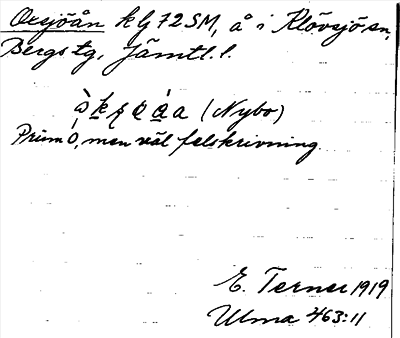 Oxsjöån k Gj 72 SM, å i Klövsjö sn,
Bergs tg, Jämtl. l.
(Nybo)
Prim ò, men väl felskrivning
E. Terner 1919
Ulma 463:11